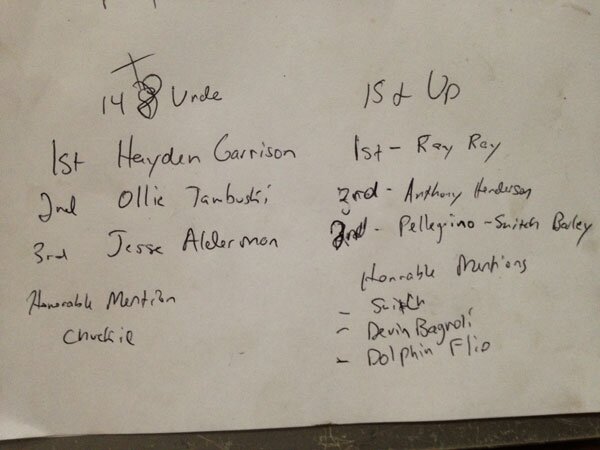 14 & Unde
1st Hayden Garrison
2nd Ollie Tambuski
3rd Jesse Alderman
Honorable Mention
Chuckie
15 & Up
1st - Ray Ray
2nd - Anthony Henderson
3rd - Pellegrino - Switch Barley
Honorable Mentions
- Switch
- Devin Bagnoli
- Dolphin Flip